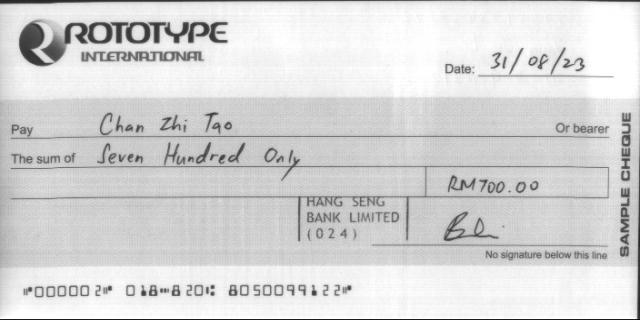 ROTOTYPE
INTERNATIONAL
Date: 31/08/23
Pay Chan Zhi Tao Or bearer
The sum of Seven Hundred Only
RM700.00
HANG SENG
BANK LIMITED
(024)
No signature below this line
SAMPLE CHEQUE
⑈000002⑈ 018⑉820⑆ 8050099122⑈